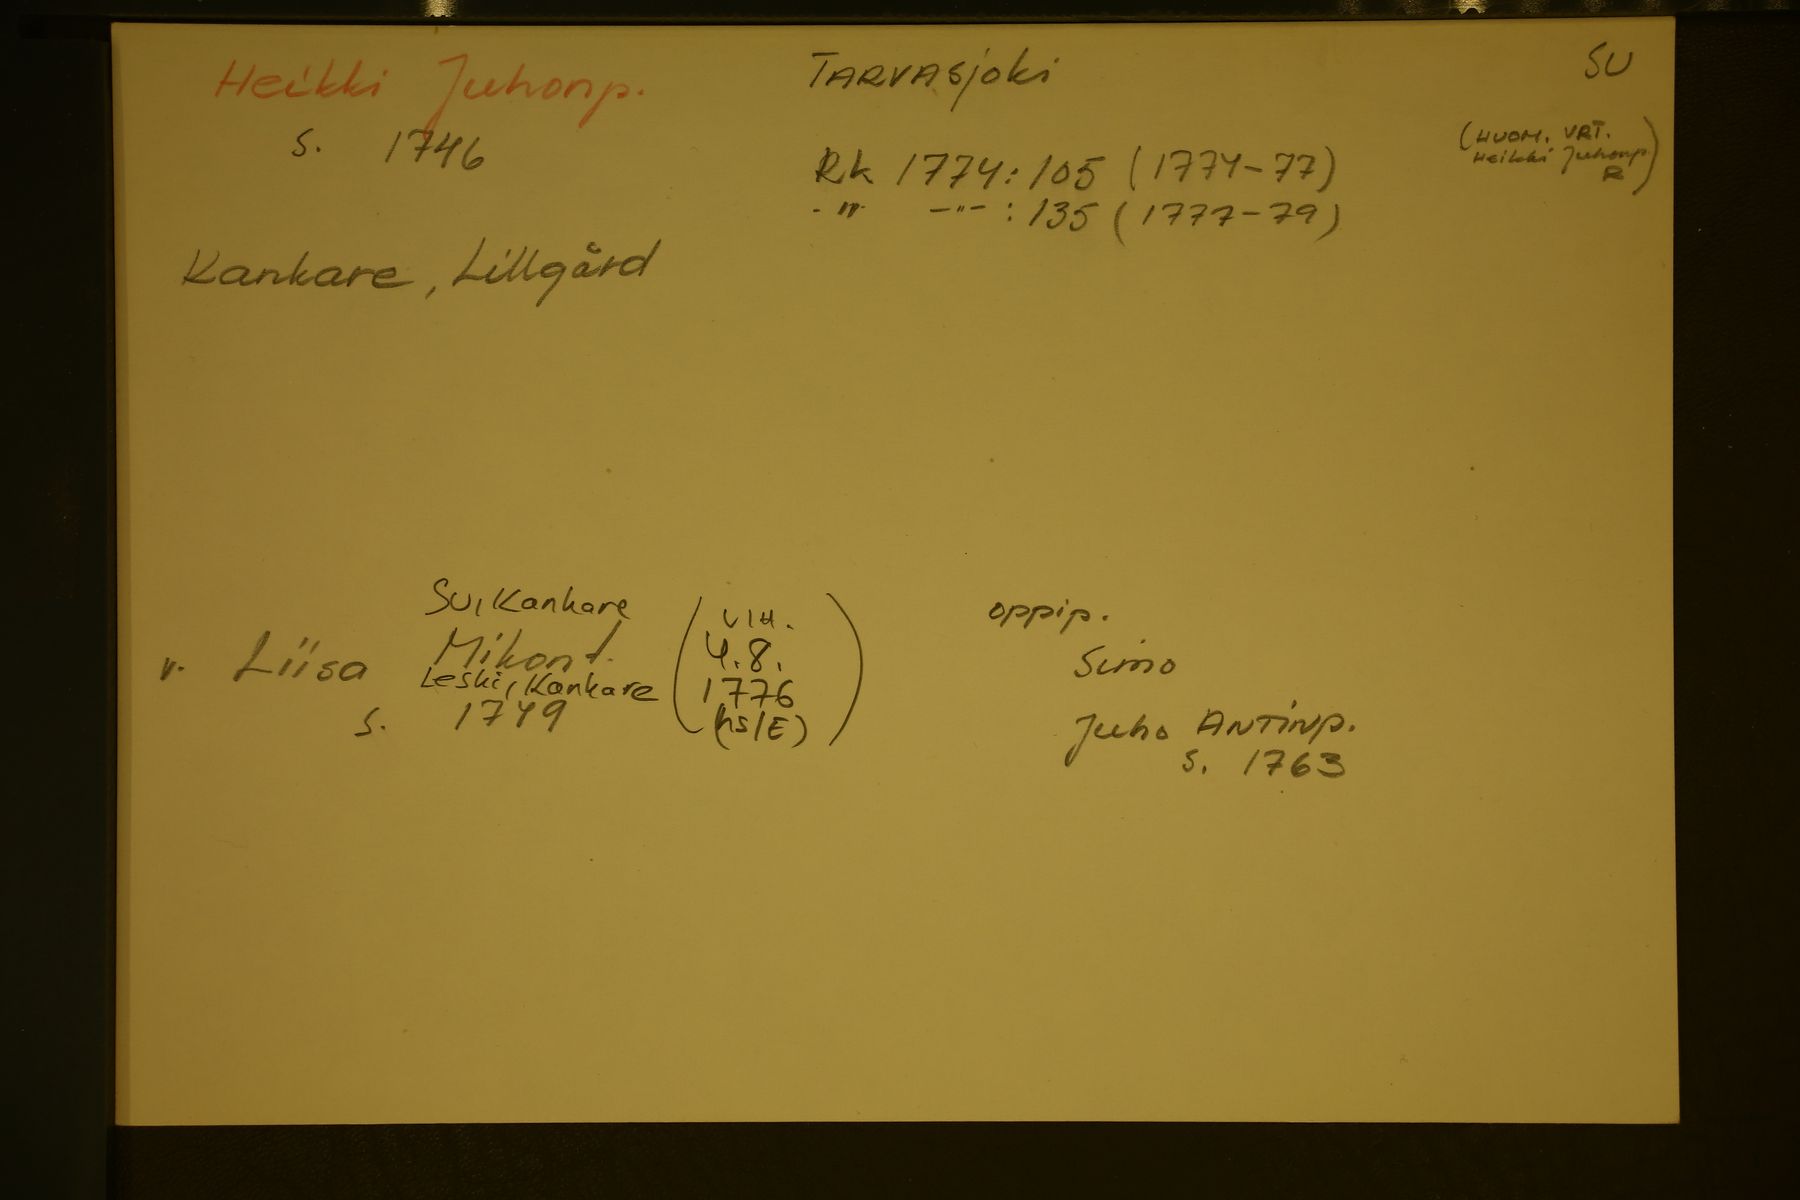 Heikki Juhonp.
s. 1746
Kankare, Lillgård
TARVASjoki
Rk 1774:105 (1774-77)
-"- -"- :135 (1777-79)
SU
(HUOM. VRT.
Heikki Juhonp
R)
SU, Kankare
v. Liisa Mikont.
Leski, Kankare
s. 1749
(VIH.
4.8.
1776
(hs/E))
oppip.
Simo
Juho ANTINP.
s. 1763